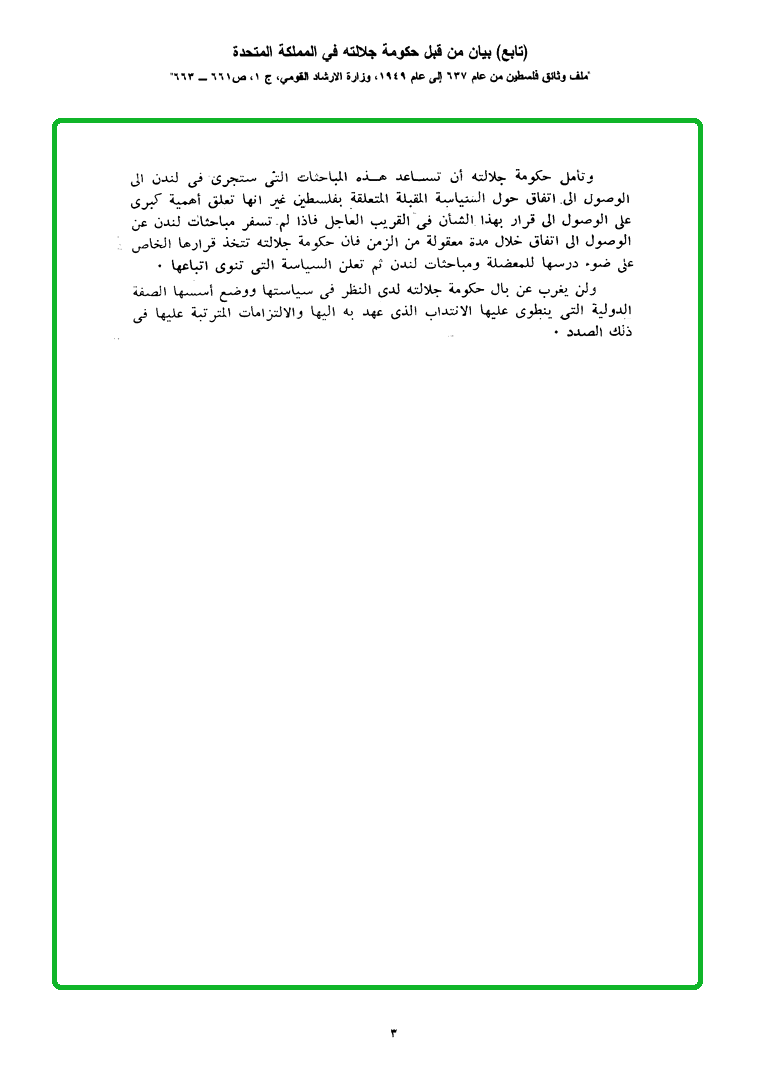 (تابع) بيان من قبل حكومة جلالته في المملكة المتحدة
"ملف وثائق فلسطين من عام ٦٣٧ إلى عام ١٩٤٩، وزارة الارشاد القومي، ج ١، ص٦٦١ ــ ٦٦٣"
وتأمل حكومة جلالته أن تساعد هـذه المباحثات التى ستجرى فى لندن الى
الوصول الى اتفاق حول السياسة المقبلة المتعلقة بفلسطين غير انها تعلق أهمية كبرى
على الوصول الى قرار بهذا الشأن فى القريب العاجل فاذا لم تسفر مباحثات لندن عن
الوصول الى اتفاق خلال مدة معقولة من الزمن فان حكومة جلالته تتخذ قرارها الخاص
على ضوء درسها للمعضلة ومباحثات لندن ثم تعلن السياسة التى تنوى اتباعها ٠
ولن يغرب عن بال حكومة جلالته لدى النظر فى سياستها ووضع أسسها الصفة
الدولية التى ينطوى عليها الانتداب الذى عهد به اليها والالتزامات المترتبة عليها فى
ذلك الصدد ٠
٣